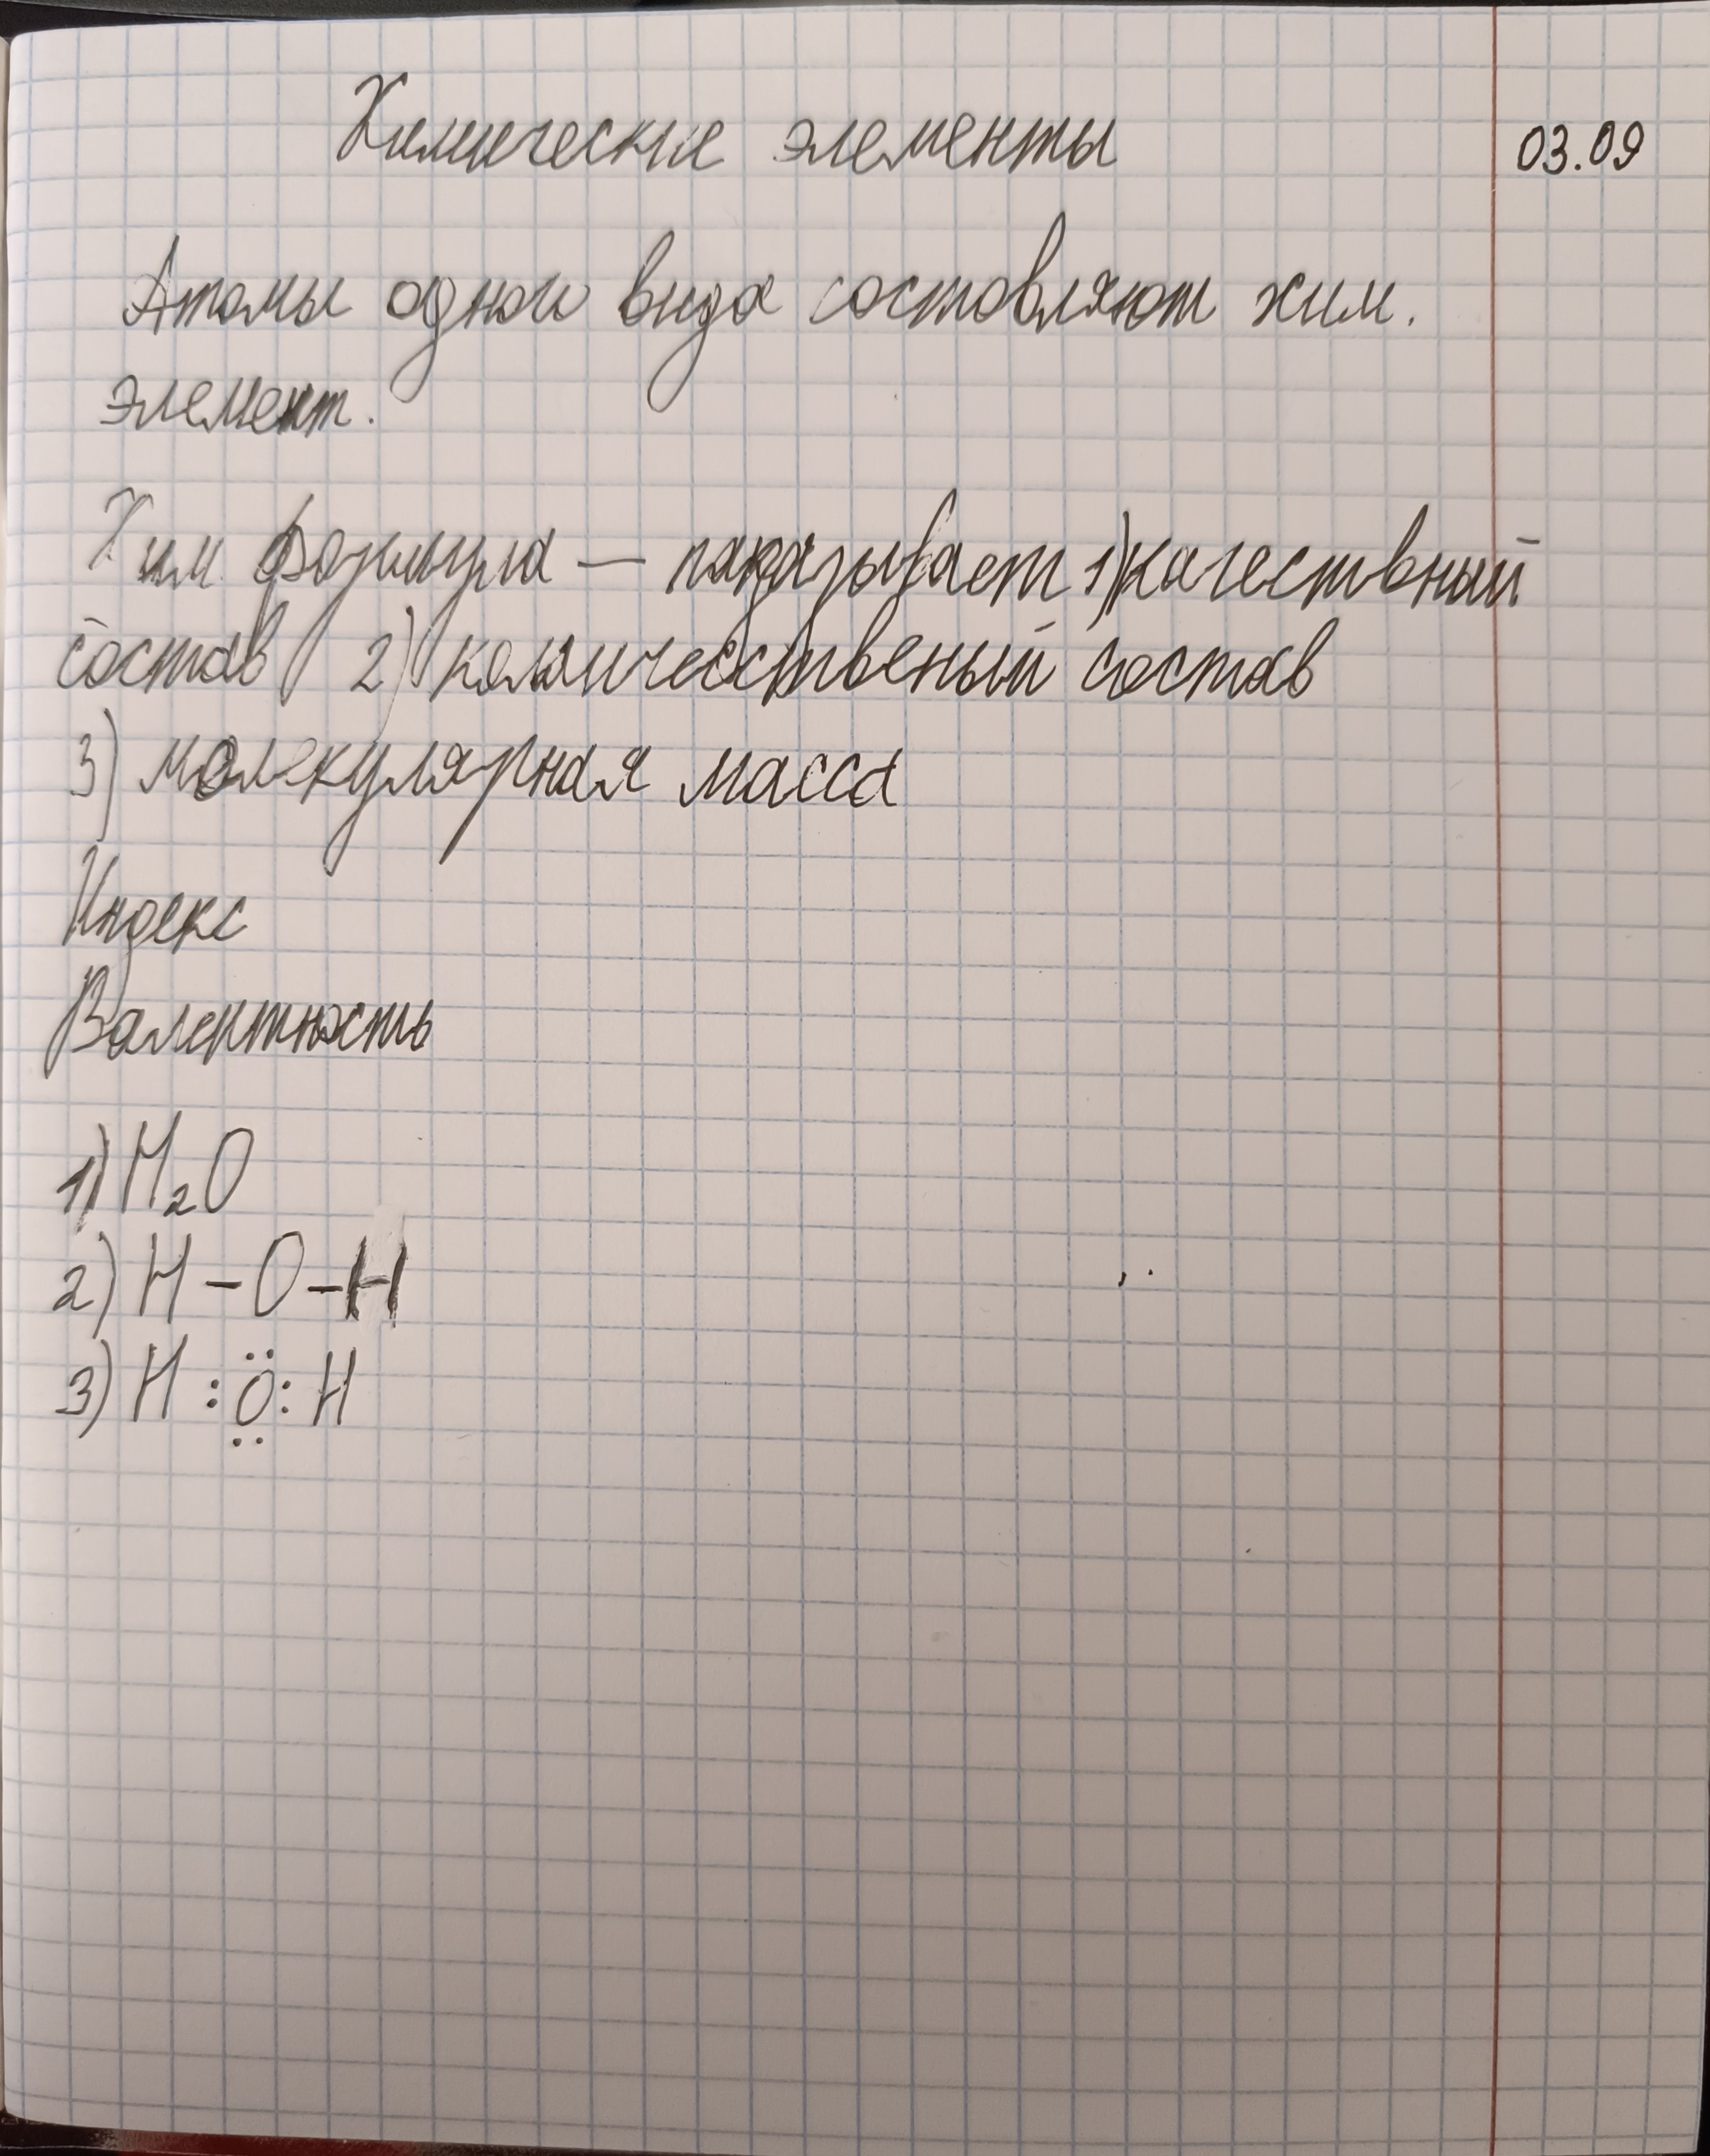 Химические элементы 03.09
Атомы одного вида составляют хим.
элемент.
Хим формула — показывает 1) качествный
состав 2) количественый состав
3) молекулярная масса
Индекс
Валентность
1) H₂O
2) H – O – H
3) H : Ö : H